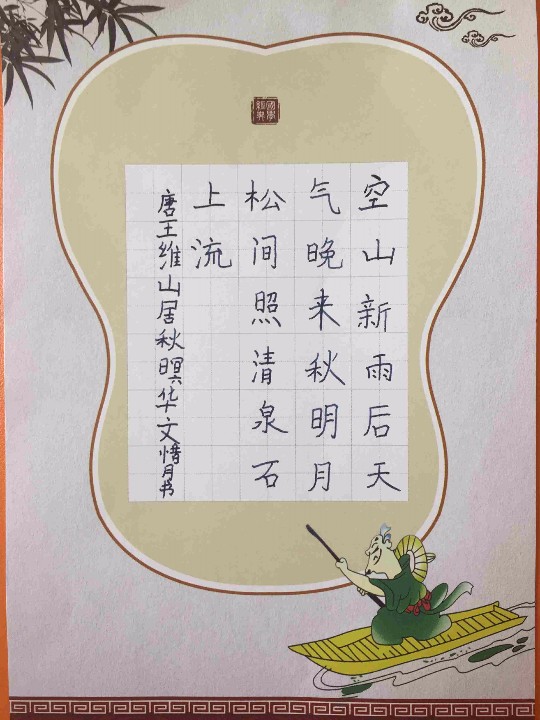 空山新雨后天
气晚来秋明月
松间照清泉石
上流
唐王维山居秋暝华文惜月书